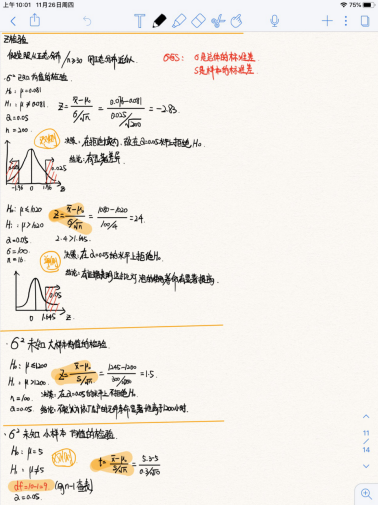 上午10:01 11月26日周四
75%
Z检验
假设服从正态分布/n≥30 用正态分布近似
OBS: σ是总体的标准差
S是样本的标准差
·σ²已知 均值的检验
H₀: μ=0.081
H₁: μ≠0.081
α=0.05
n=200
Z= x̄-μ₀ / σ/√n = 0.076-0.081 / 0.025/√200 = -2.83
决策: 在α=0.05的水平上拒绝H₀
结论: 有显著差异
0.025
-1.96 0 1.96 Z
H₀: μ≤1020
H₁: μ>1020
α=0.05
σ=100
n=16
Z= x̄-μ₀ / σ/√n = 1080-1020 / 100/4 = 2.4
2.4>1.645
决策: 在α=0.05的水平上拒绝H₀
结论: 有显著提高
0.05
0 1.645 Z
·σ²未知 大样本均值的检验
H₀: μ≤1200
H₁: μ>1200
n=100
α=0.05
Z= x̄-μ₀ / S/√n = 1245-1200 / 300/√100 = 1.5
决策: 在α=0.05的水平上不能拒绝H₀
·σ²未知 小样本 均值的检验
H₀: μ=5
H₁: μ≠5
df=10-1=9
α=0.05
t= x̄-μ₀ / S/√n = 5.3-5 / 0.3/√10
11
14